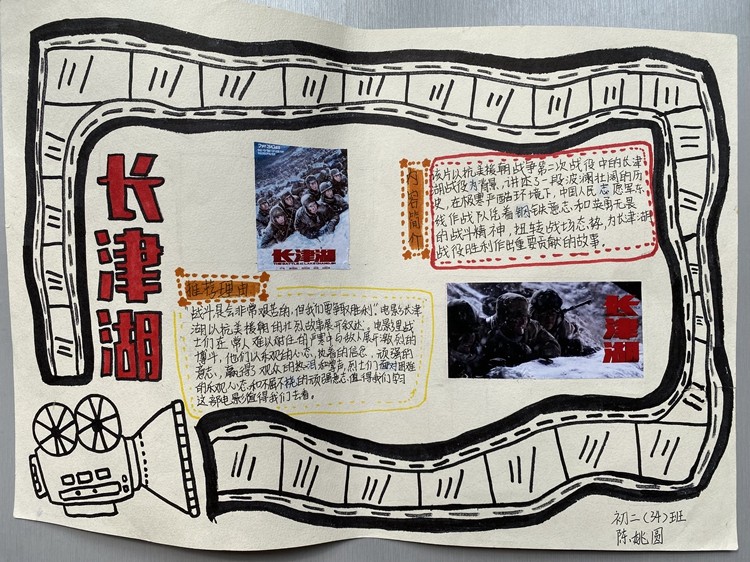 长津湖
长津湖
THE BATTLE AT LAKE CHANGJIN
内容简介
该片以抗美援朝战争第二次战役中的长津
湖战役为背景，讲述了一段波澜壮阔的历
史，在极寒严酷环境下，中国人民志愿军东
线作战队凭着钢铁意志和英勇无畏
的战斗精神，扭转战场态势，为长津湖
战役胜利作出重要贡献的故事。
推荐理由
战斗是会非常艰苦的，但我们要争取胜利！"电影《长津
湖》以抗美援朝的壮烈故事展开叙述，电影里战
士们在常人难以耐住的严寒中与敌人展开激烈的
博斗，他们以乐观的心态，执着的信念，顽强的
意志，赢得了观众的热泪和掌声，烈士们面对困难
的乐观心态和不屈不挠的顽强意志值得我们学习
这部电影值得我们去看。
长津湖
初二（34）班
陈姚圆